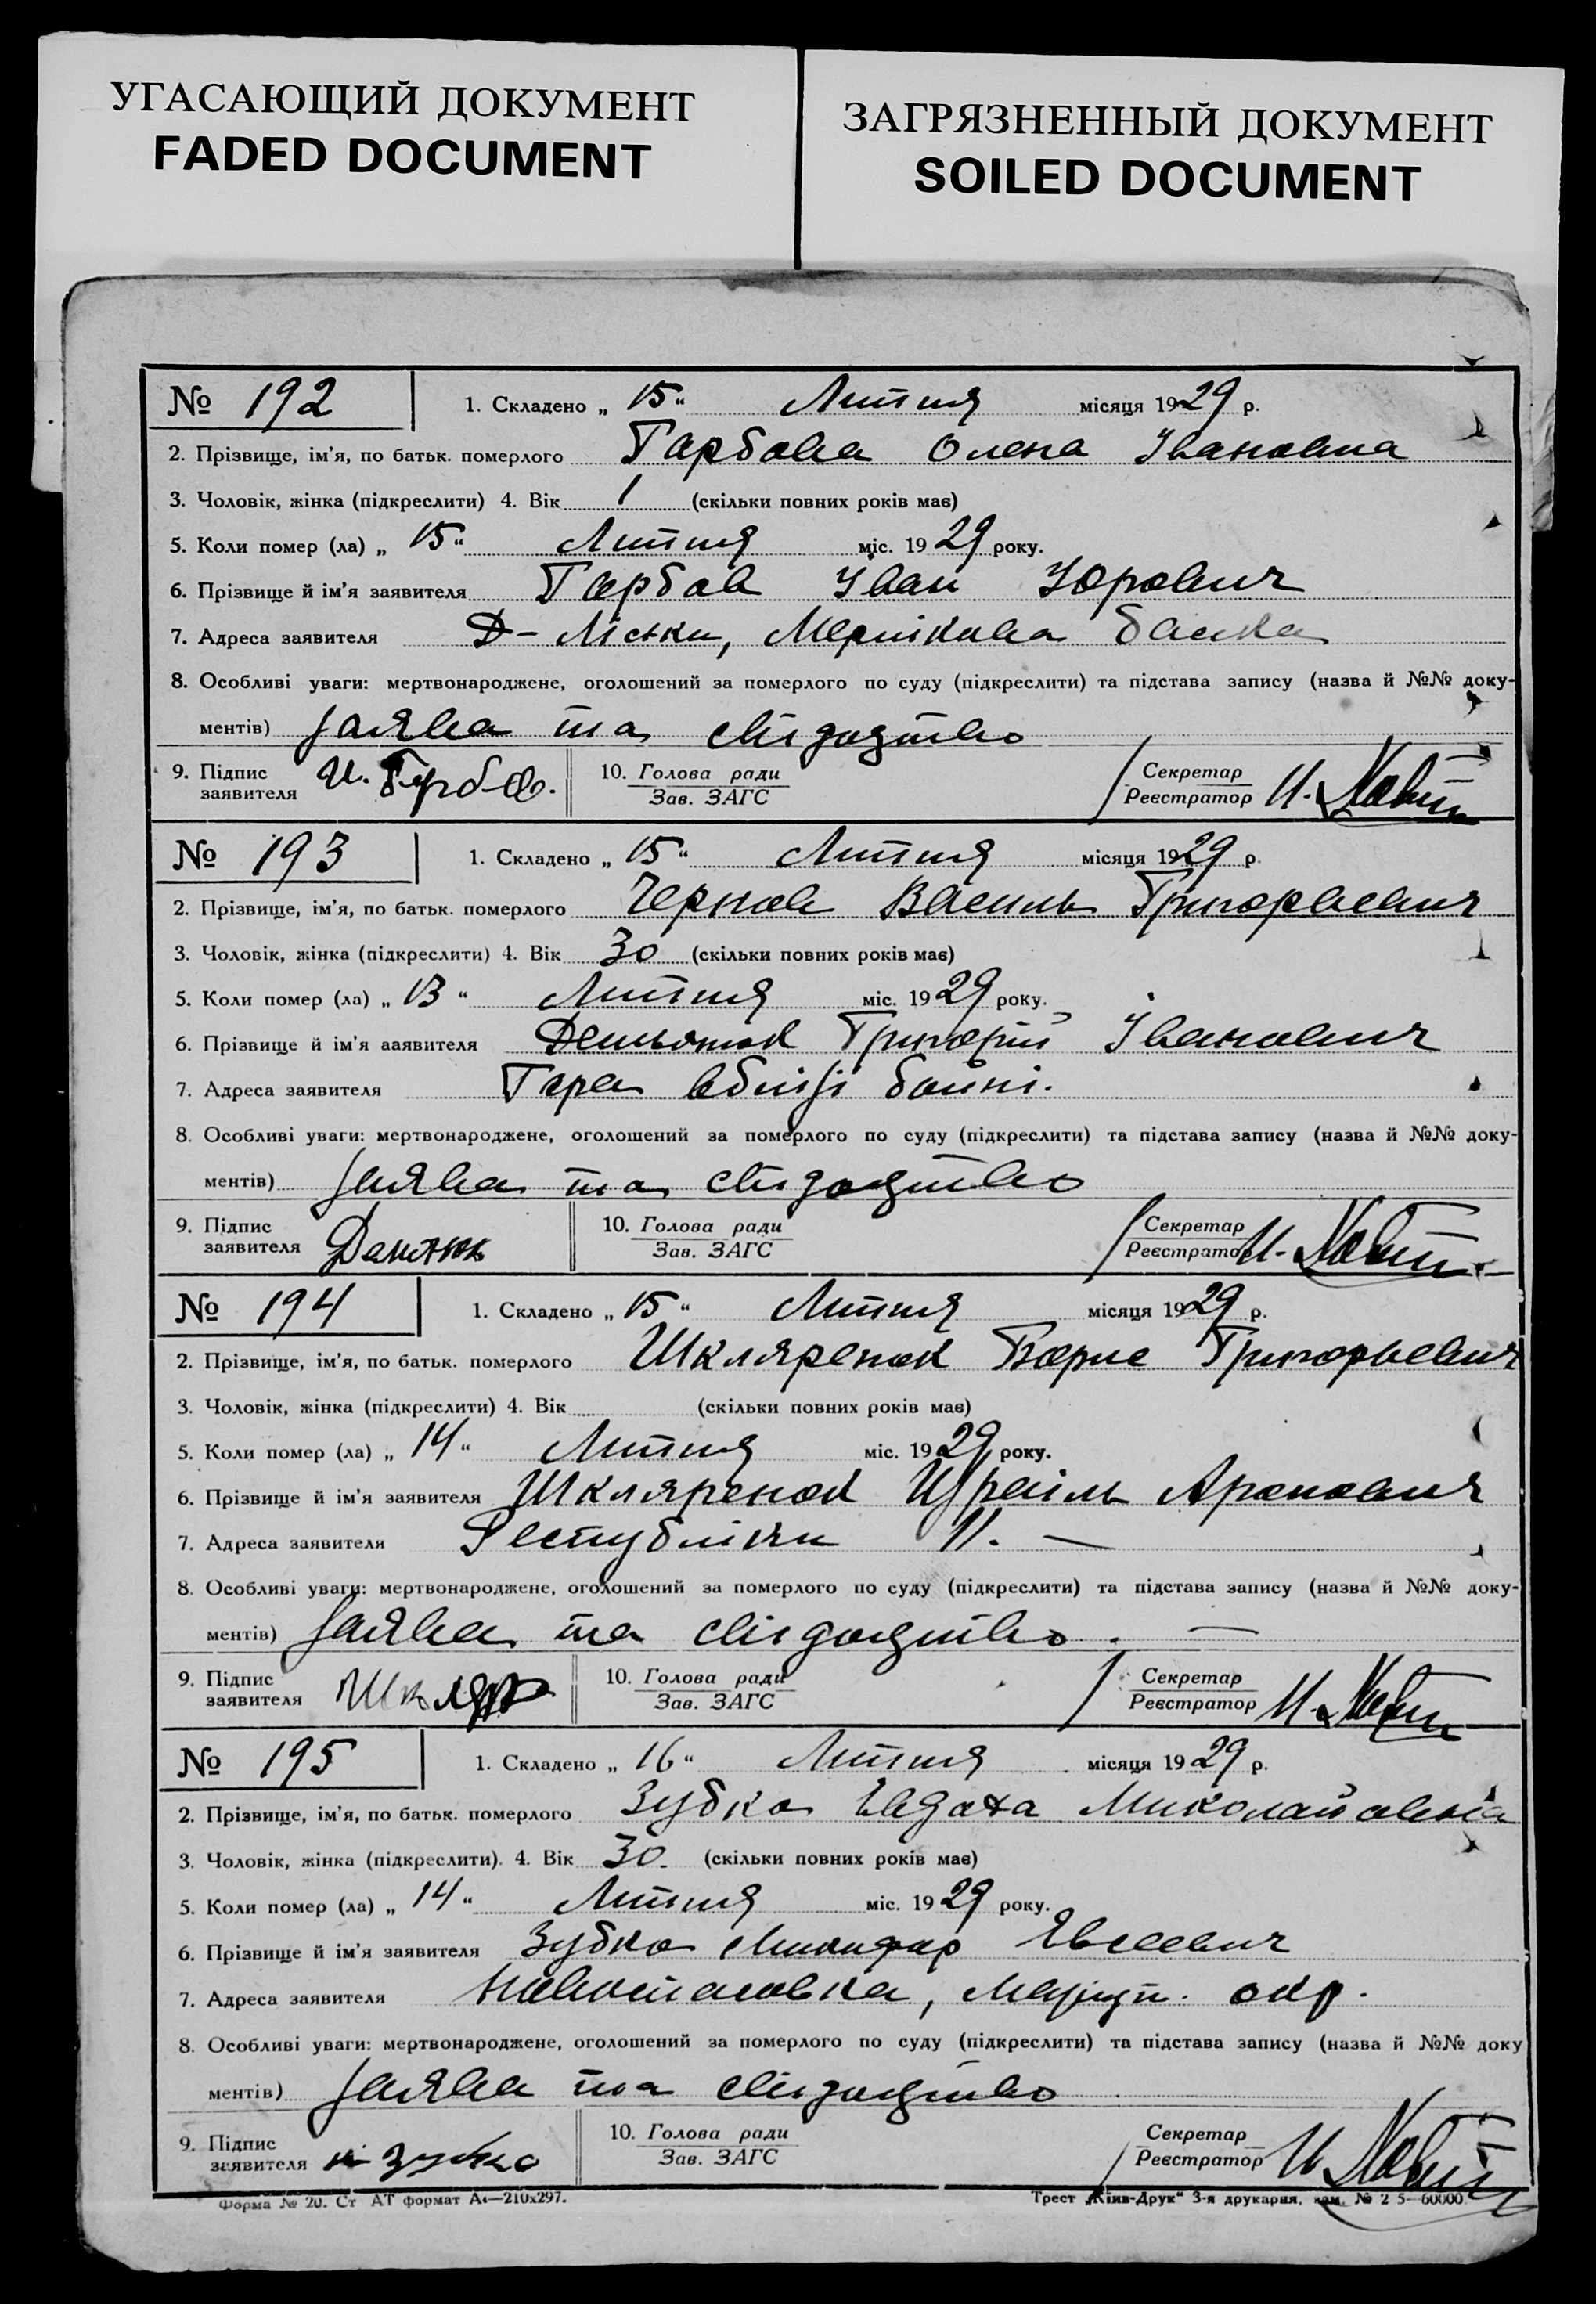 УГАСАЮЩИЙ ДОКУМЕНТ
FADED DOCUMENT
ЗАГРЯЗНЕННЫЙ ДОКУМЕНТ
SOILED DOCUMENT
№ 192 1. Складено „ 15 “ Липня місяця 1929 р.
2. Прізвище, ім'я, по батьк. померлого Гарбова Олена Івановна
3. Чоловік, жінка (підкреслити) 4. Вік 1 (скільки повних років має)
5. Коли помер (ла) „ 15 “ Липня міс. 1929 року.
6. Прізвище й ім'я заявителя Гарбов Іван Юрович
7. Адреса заявителя Д-Ліски, Балка
8. Особливі уваги: мертвонароджене, оголошений за померлого по суду (підкреслити) та підстава запису (назва й №№ доку-
ментів) Заява та свідоцтво
9. Підпис заявителя И. Гербов. 10. Голова ради Зав. ЗАГС Секретар Реєстратор
№ 193 1. Складено „ 15 “ Липня місяця 1929 р.
2. Прізвище, ім'я, по батьк. померлого Чернов Василь Григорьевич
3. Чоловік, жінка (підкреслити) 4. Вік 30 (скільки повних років має)
5. Коли помер (ла) „ 13 “ Липня міс. 1929 року.
6. Прізвище й ім'я заявителя Григорій Іванович
7. Адреса заявителя Гора вблизі бойні.
8. Особливі уваги: мертвонароджене, оголошений за померлого по суду (підкреслити) та підстава запису (назва й №№ доку-
ментів) Заява та свідоцтво
9. Підпис заявителя 10. Голова ради Зав. ЗАГС Секретар Реєстратор
№ 194 1. Складено „ 15 “ Липня місяця 1929 р.
2. Прізвище, ім'я, по батьк. померлого Шкляренок Борис Григорьевич
3. Чоловік, жінка (підкреслити) 4. Вік (скільки повних років має)
5. Коли помер (ла) „ 14 “ Липня міс. 1929 року.
6. Прізвище й ім'я заявителя Шкляренок Ізраіль Аронович
7. Адреса заявителя Республіки 11. —
8. Особливі уваги: мертвонароджене, оголошений за померлого по суду (підкреслити) та підстава запису (назва й №№ доку-
ментів) Заява та свідоцтво. —
9. Підпис заявителя Шкляр 10. Голова ради Зав. ЗАГС Секретар Реєстратор
№ 195 1. Складено „ 16 “ Липня місяця 1929 р.
2. Прізвище, ім'я, по батьк. померлого Зубко Евдоха Миколайовна
3. Чоловік, жінка (підкреслити). 4. Вік 30. (скільки повних років має)
5. Коли помер (ла) „ 14 “ Липня міс. 1929 року.
6. Прізвище й ім'я заявителя Зубко Никифор Євсеевич
7. Адреса заявителя окр.
8. Особливі уваги: мертвонароджене, оголошений за померлого по суду (підкреслити) та підстава запису (назва й №№ доку
ментів) Заява та свідоцтво
9. Підпис заявителя Н Зубко 10. Голова ради Зав. ЗАГС Секретар Реєстратор
Форма № 20. Ст АТ формат А4—210х297. Трест „Київ-Друк“ 3-я друкарня, зам. № 2 5—60000